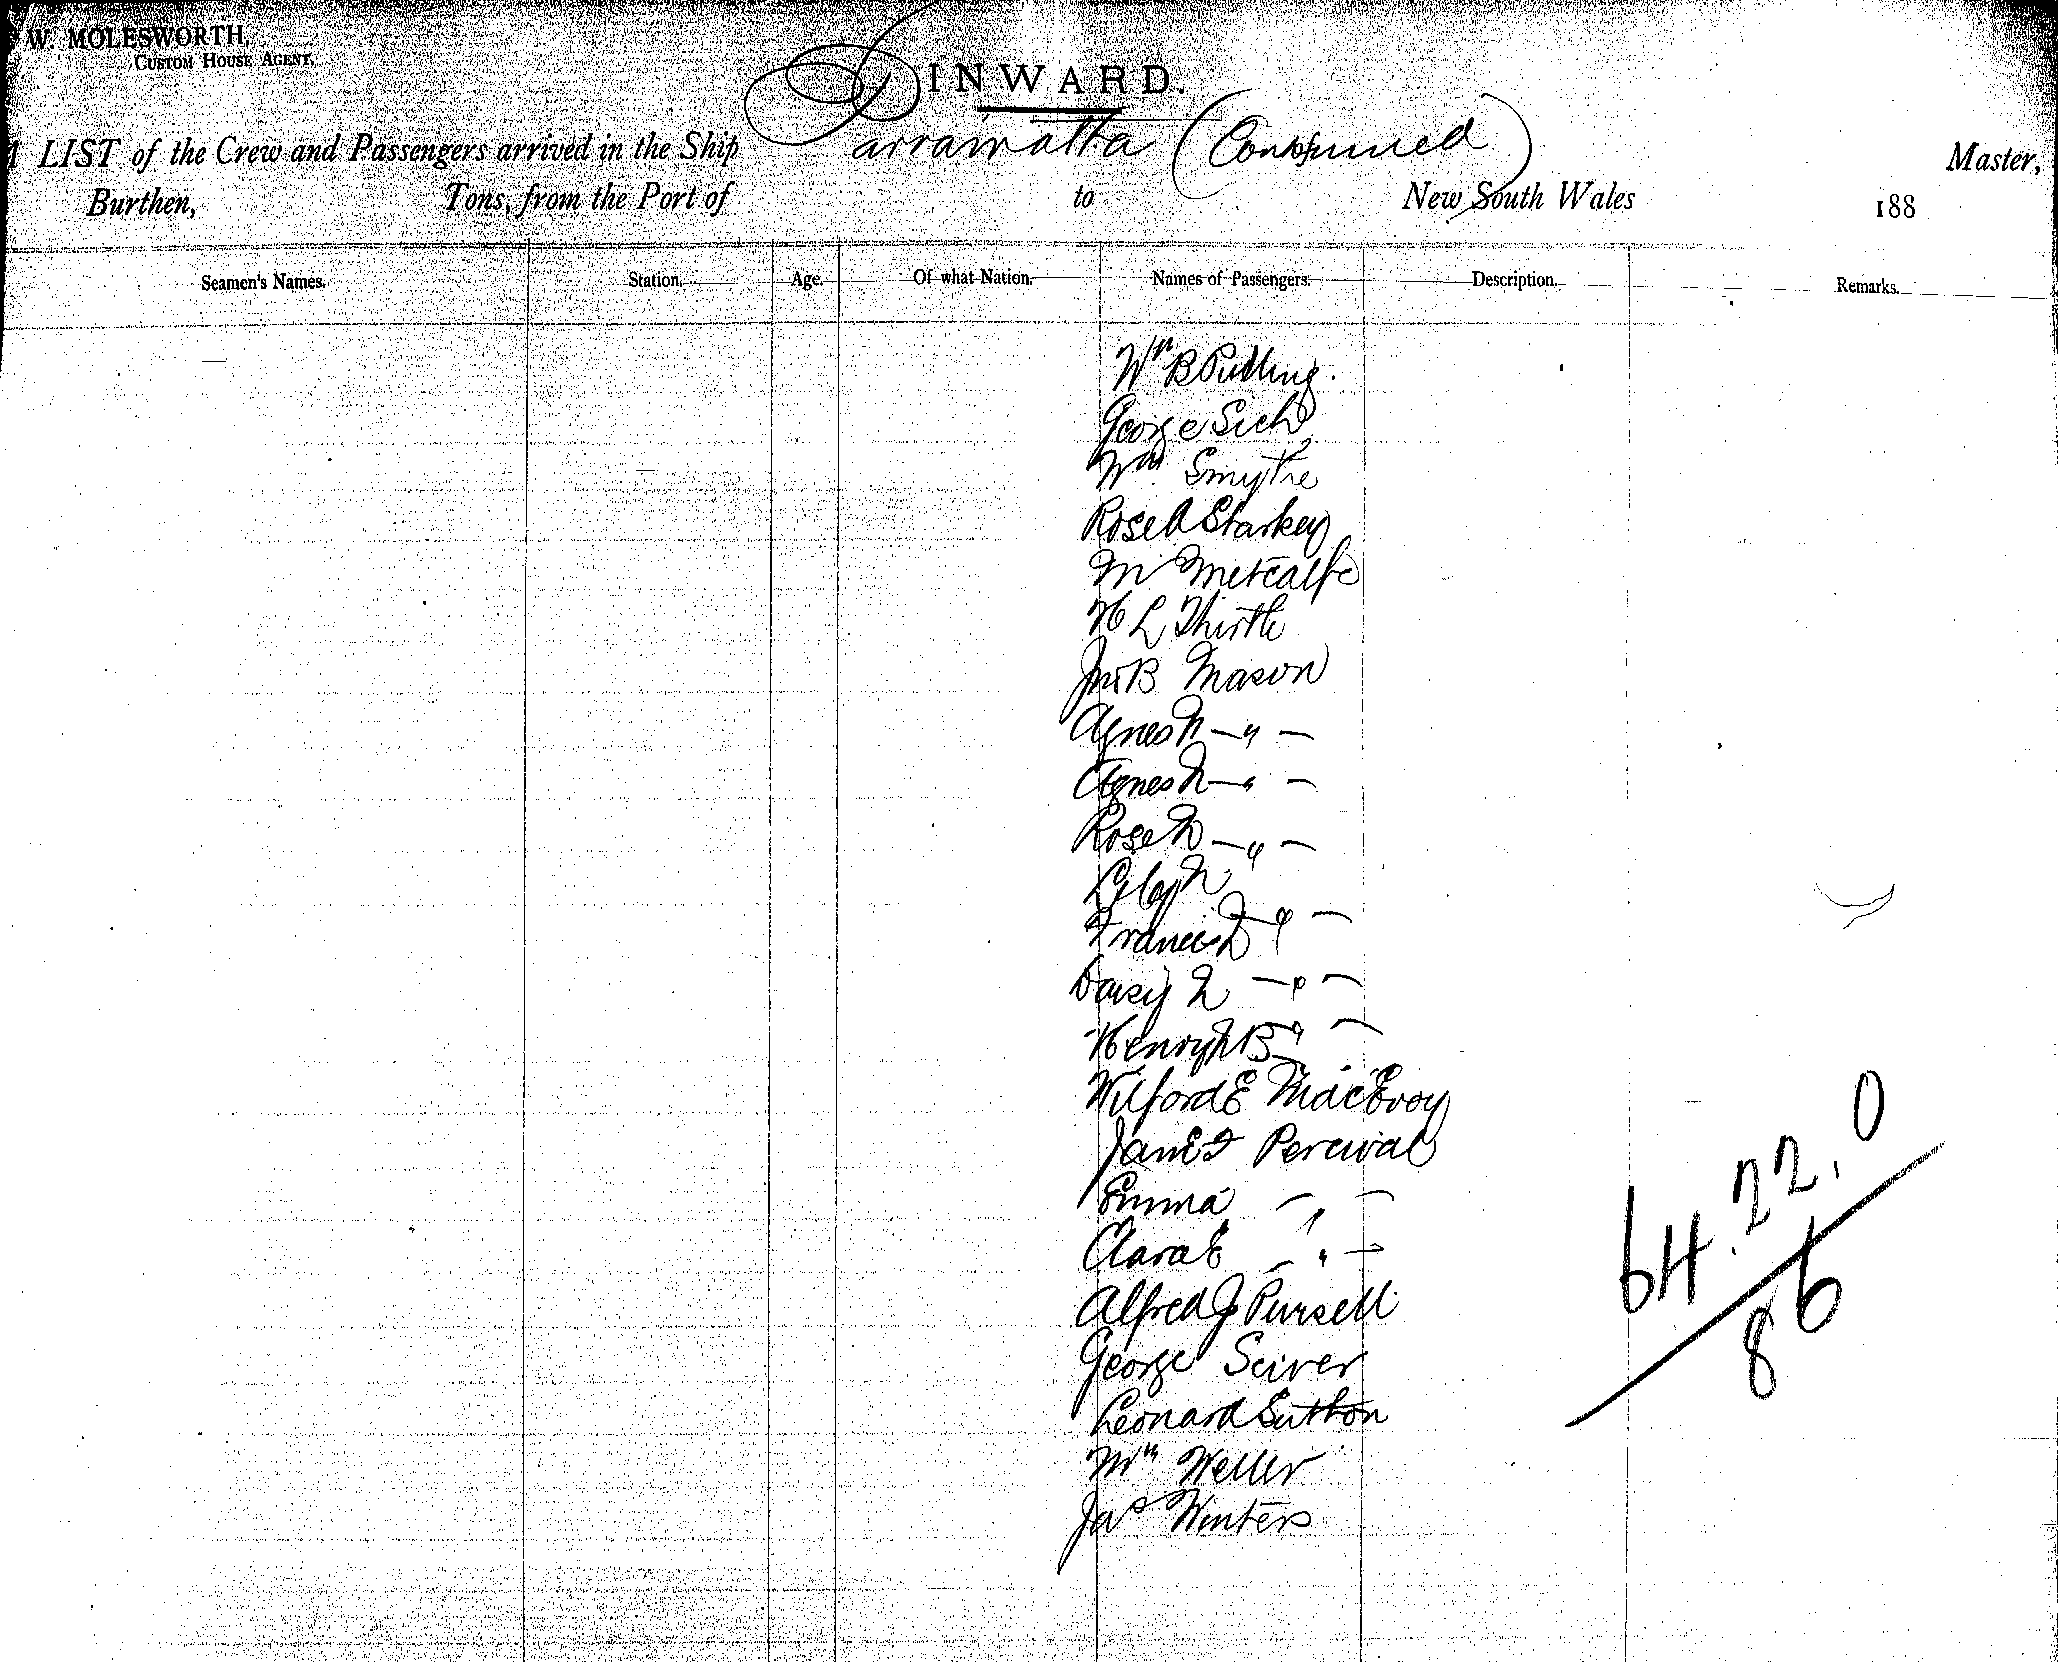 W. MOLESWORTH,
CUSTOM HOUSE AGENT.
INWARD.
A LIST of the Crew and Passengers arrived in the Ship Parramatta (Continued) Master,
Burthen, Tons, from the Port of to New South Wales 188
Seamen's Names. Station. Age. Of what Nation. Names of Passengers. Description. Remarks.
Wm B Pulling.
George Sich
Wm Smythe
Rose A Starkey
M Metcalfe
H L Thirtle
Jno B Mason
Agnes M — " —
Agnes M — " —
Rose M — " —
M
Francis M — " —
Daisy M — " —
Henry M B " —
Wilford E MacEvoy
Jane F Percival
Emma — " —
Clara E — " —
Alfred J Pursell
George Sciver
Leonard Sutton
Weller
Jas Winters
64.22.0
86